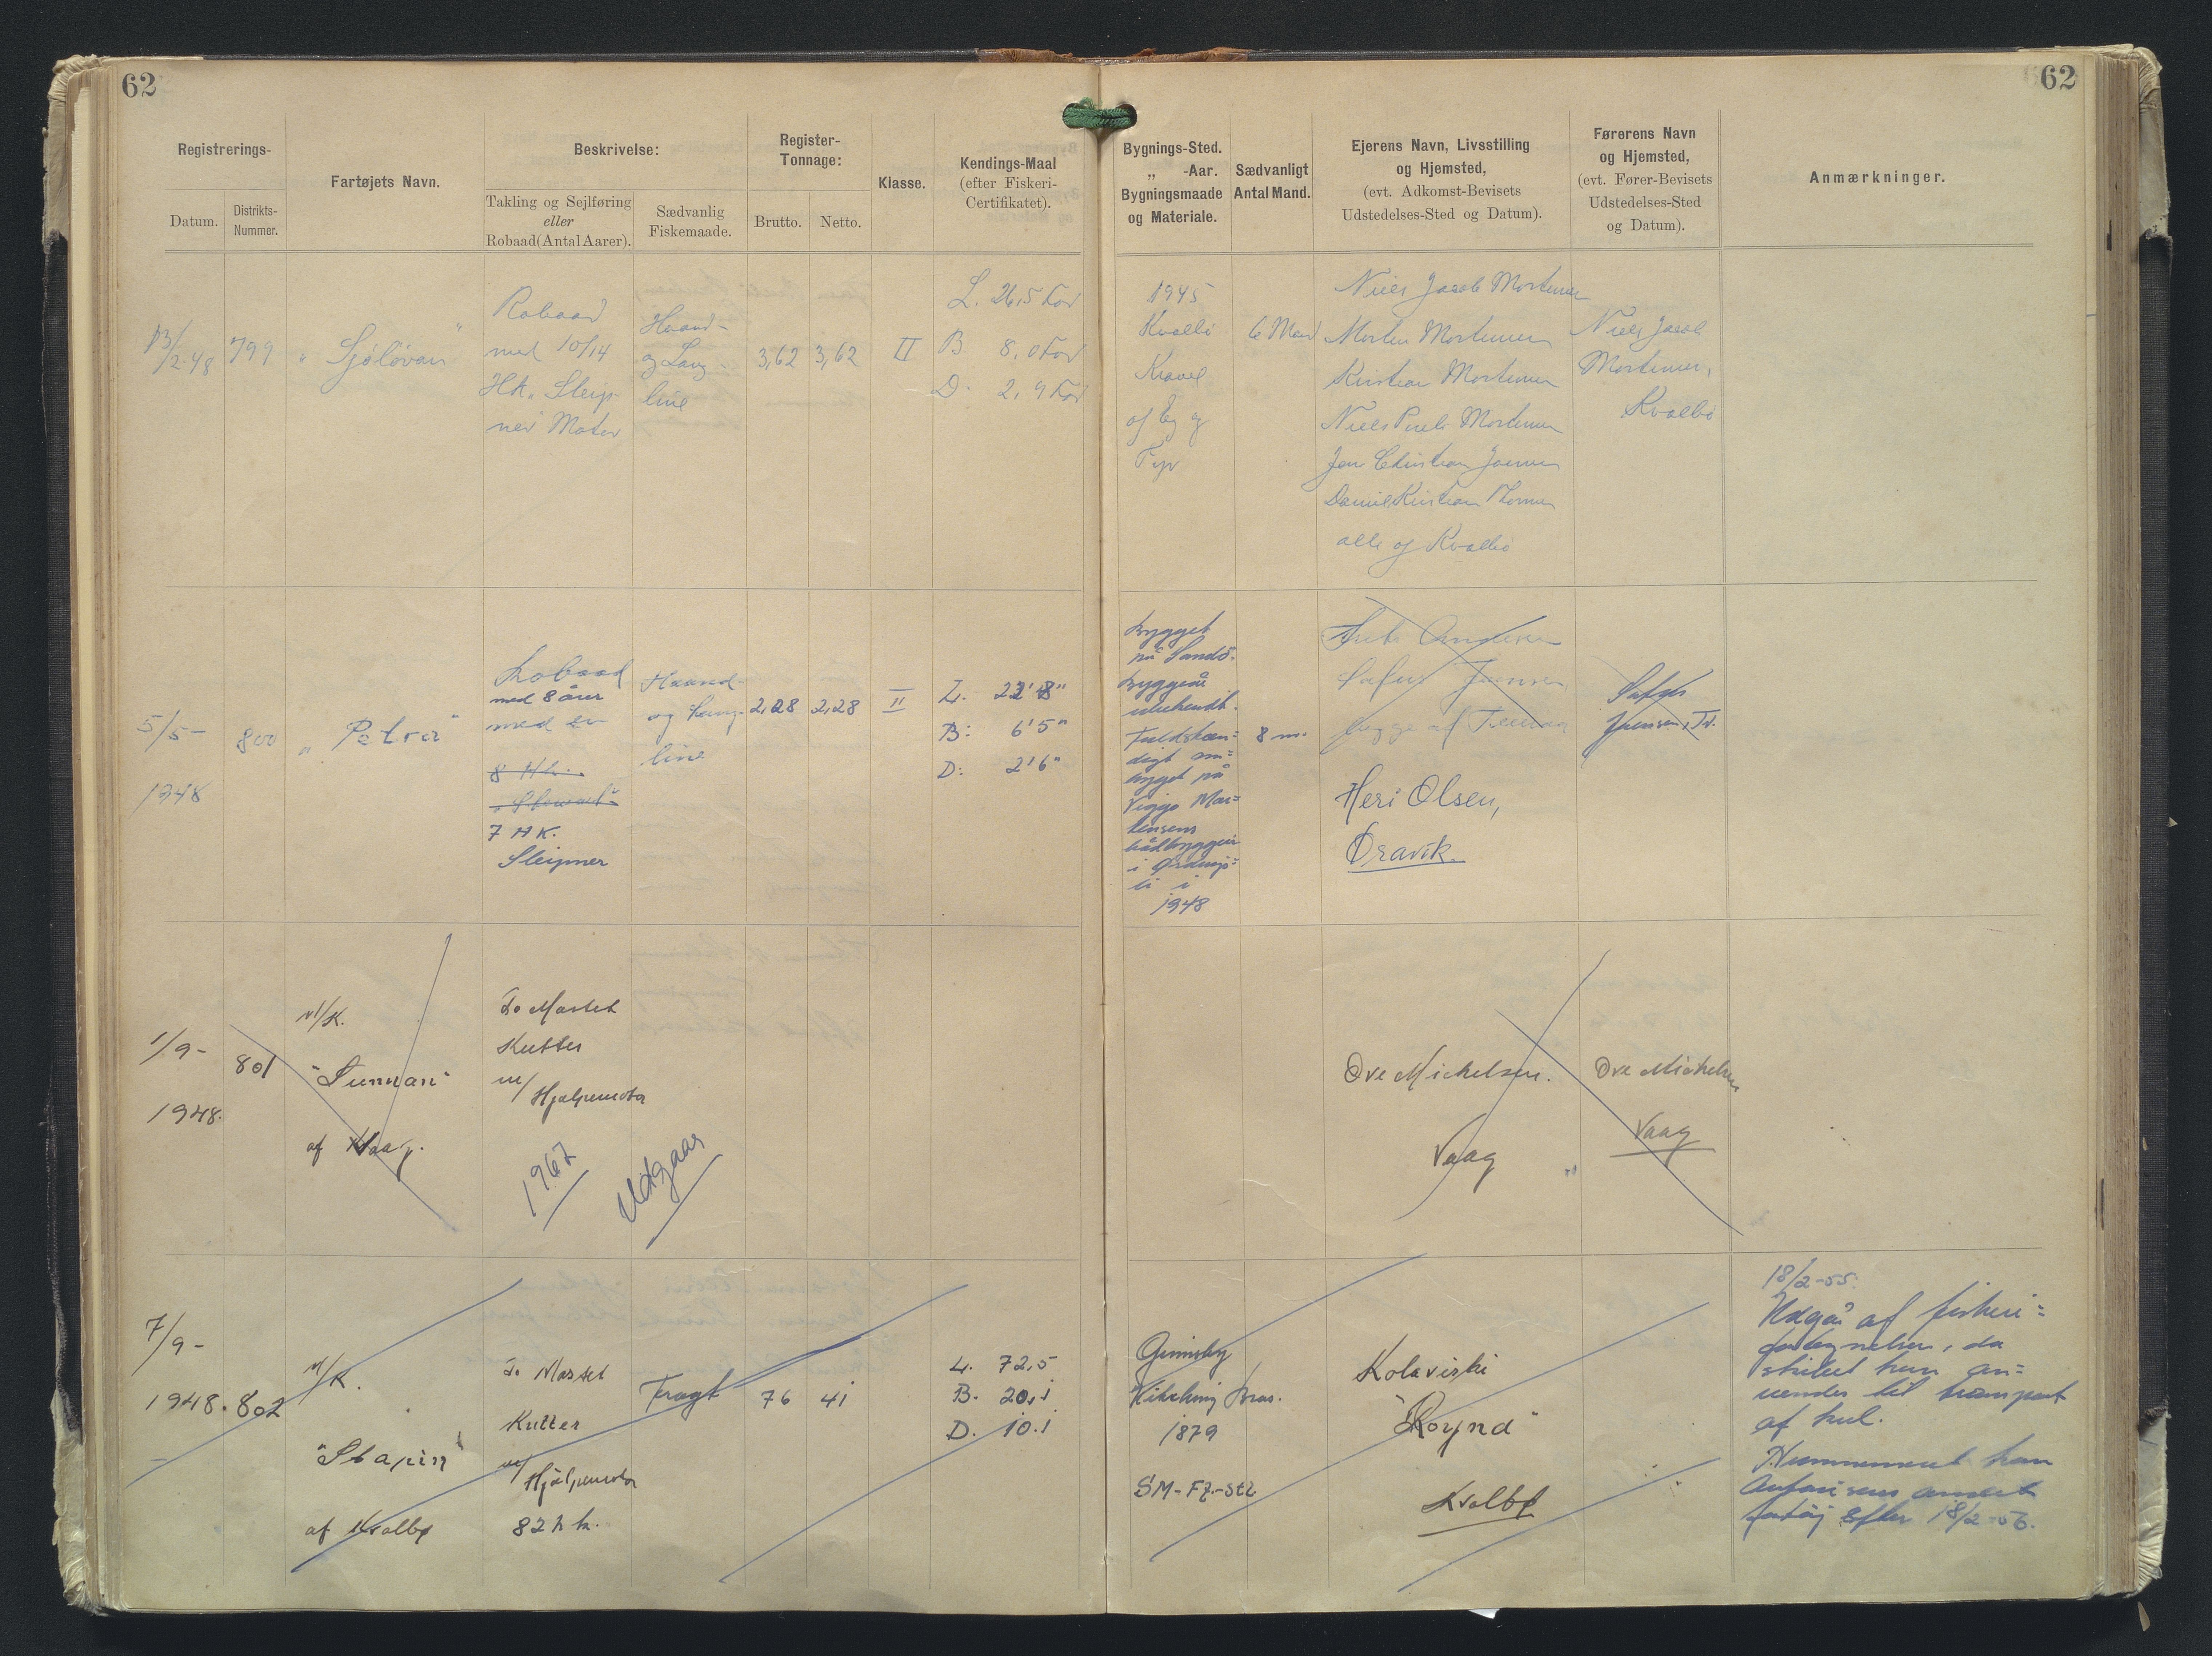 62
62
Registrerings-
Datum.
Distrikts-
Nummer.
Fartøjets Navn.
Beskrivelse:
Takling og Sejlføring
eller
Robaad(Antal Aarer).
Sædvanlig
Fiskemaade.
Register-
Tonnage:
Brutto.
Netto.
Klasse.
Kendings-Maal
(efter Fiskeri-
Certifikatet).
Bygnings-Sted.
„ -Aar.
Bygningsmaade
og Materiale.
Sædvanligt
Antal Mand.
Ejerens Navn, Livsstilling
og Hjemsted,
(evt. Adkomst-Bevisets
Udstedelses-Sted og Datum).
Førerens Navn
og Hjemsted,
(evt. Fører-Bevisets
Udstedelses-Sted
og Datum).
Anmærkninger.
13/2.48
799
"Sjóløvan"
Robaad
med 10/14
Hk. Sleip-
ner Motor
Haand-
og Lang-
line
3,62
3,62
II
L. 26,5 Fod
B 8,0 Fod
D. 2,9 Fod
1945
Kvalbø
Kravel
af Eg og
Fyr
6 Mand
Niels Jacob Mortensen
Morten Mortensen
Kristian Mortensen
Niels Pauli Mortensen
Jen Christian Joensen
Daniel Kristian Thomsen
alle af Kvalbø
Niels Jacob
Mortensen,
Kvalbø
5/5-
1948
800
"Petra"
Robaad
med 8 årer
med en
8 Hk.
7 HK.
Sleipner
Haand-
og Lang-
line
2,28
2,28
II
L. 22'8"
B: 6'5"
D: 2'6"
bygget
på Sandö.
byggeår
ubekendt.
Fuldstæn=
digt om=
bygget på
Viggo Mor=
tensens
bådbyggeri
i
1948
8 m.
Heri Olsen,
Øravík.
Jensen, Tv.
1/9-
1948.
801
M/K.
"Sunnan"
af Vaag.
To Mastet
Kutter
m/Hjælpemotor
1967
Udgaar
Ove Mickelsen.
Vaag
Ove Mickelsen
Vaag
7/9-
1948.
802
M/K.
"Stapin"
af Kvalbø
To Mastet
Kutter
m/Hjælpemotor
82 hk.
Fragt
76
41
L. 72,5
B. 20,1
D. 10.1
Grimsby
Bros.
1879
SM-Fz.-Stz
Kolavirki
"Royná"
Kvalbø
18/2-55.
Udgår af fiskeri=
fortegnelsen, da
skibet kun an=
vendes til transport
af kul.
Nummeret kan
andet
fartøj efter 18/2-56.